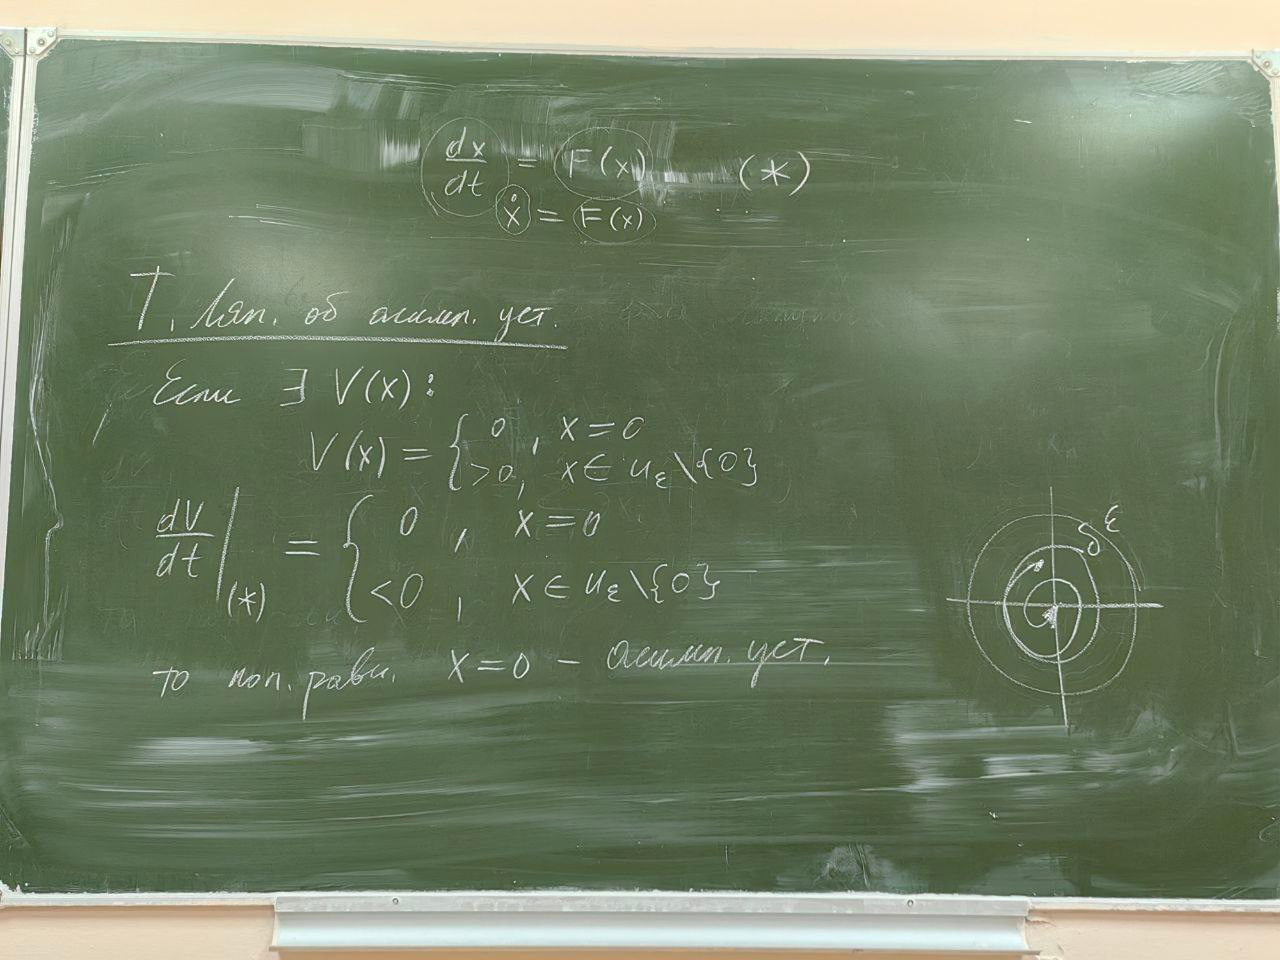 dx/dt = F(x) (*)
ẋ = F(x)
Т. Ляп. об асимп. уст.
Если ∃ V(x):
V(x) = { 0, x=0
>0, x∈ U_ε \ {0}
dV/dt |_(*) = { 0, x=0
<0, x∈ U_ε \ {0}
то пол. равн. x=0 – асимп. уст.
δ ε